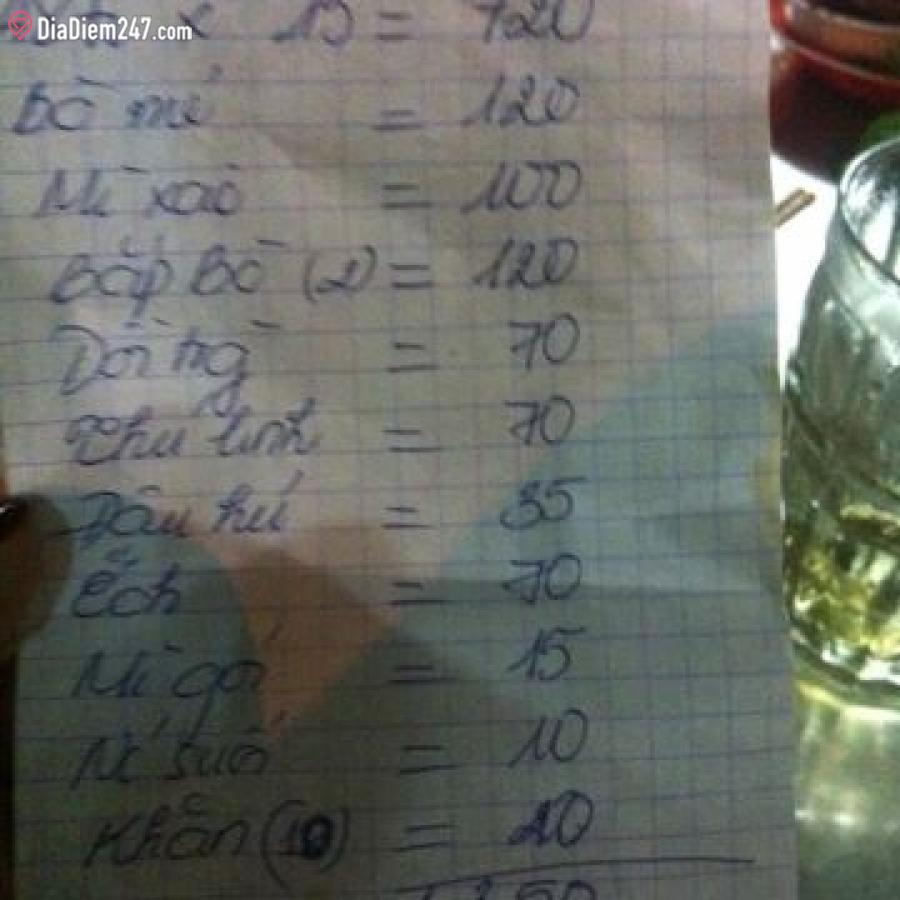 DiaDiem247.com
= 720
Bò mẻ = 120
Mì xào = 100
Bắp Bò (2) = 120
Dồi trg = 70
= 70
Đậu hú = 35
Ếch = 70
Mì gói = 15
Nc suối = 10
Khăn (10) = 20